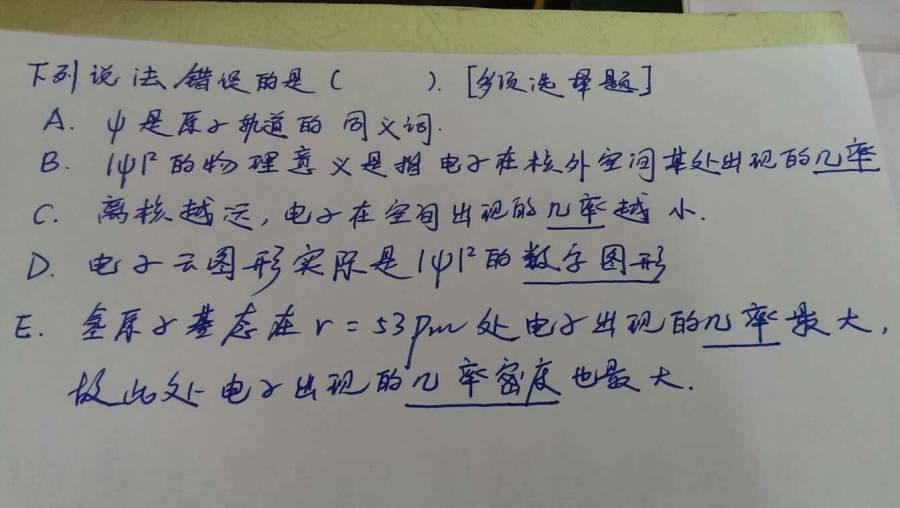 下列说法错误的是( ). [多项选择题]
A. ψ是原子轨道的同义词.
B. |ψ|²的物理意义是指电子在核外空间某处出现的几率
C. 离核越远,电子在空间出现的几率越小.
D. 电子云图形实际是|ψ|²的数学图形
E. 氢原子基态在r=53pm处电子出现的几率最大,
故此处电子出现的几率密度也最大.